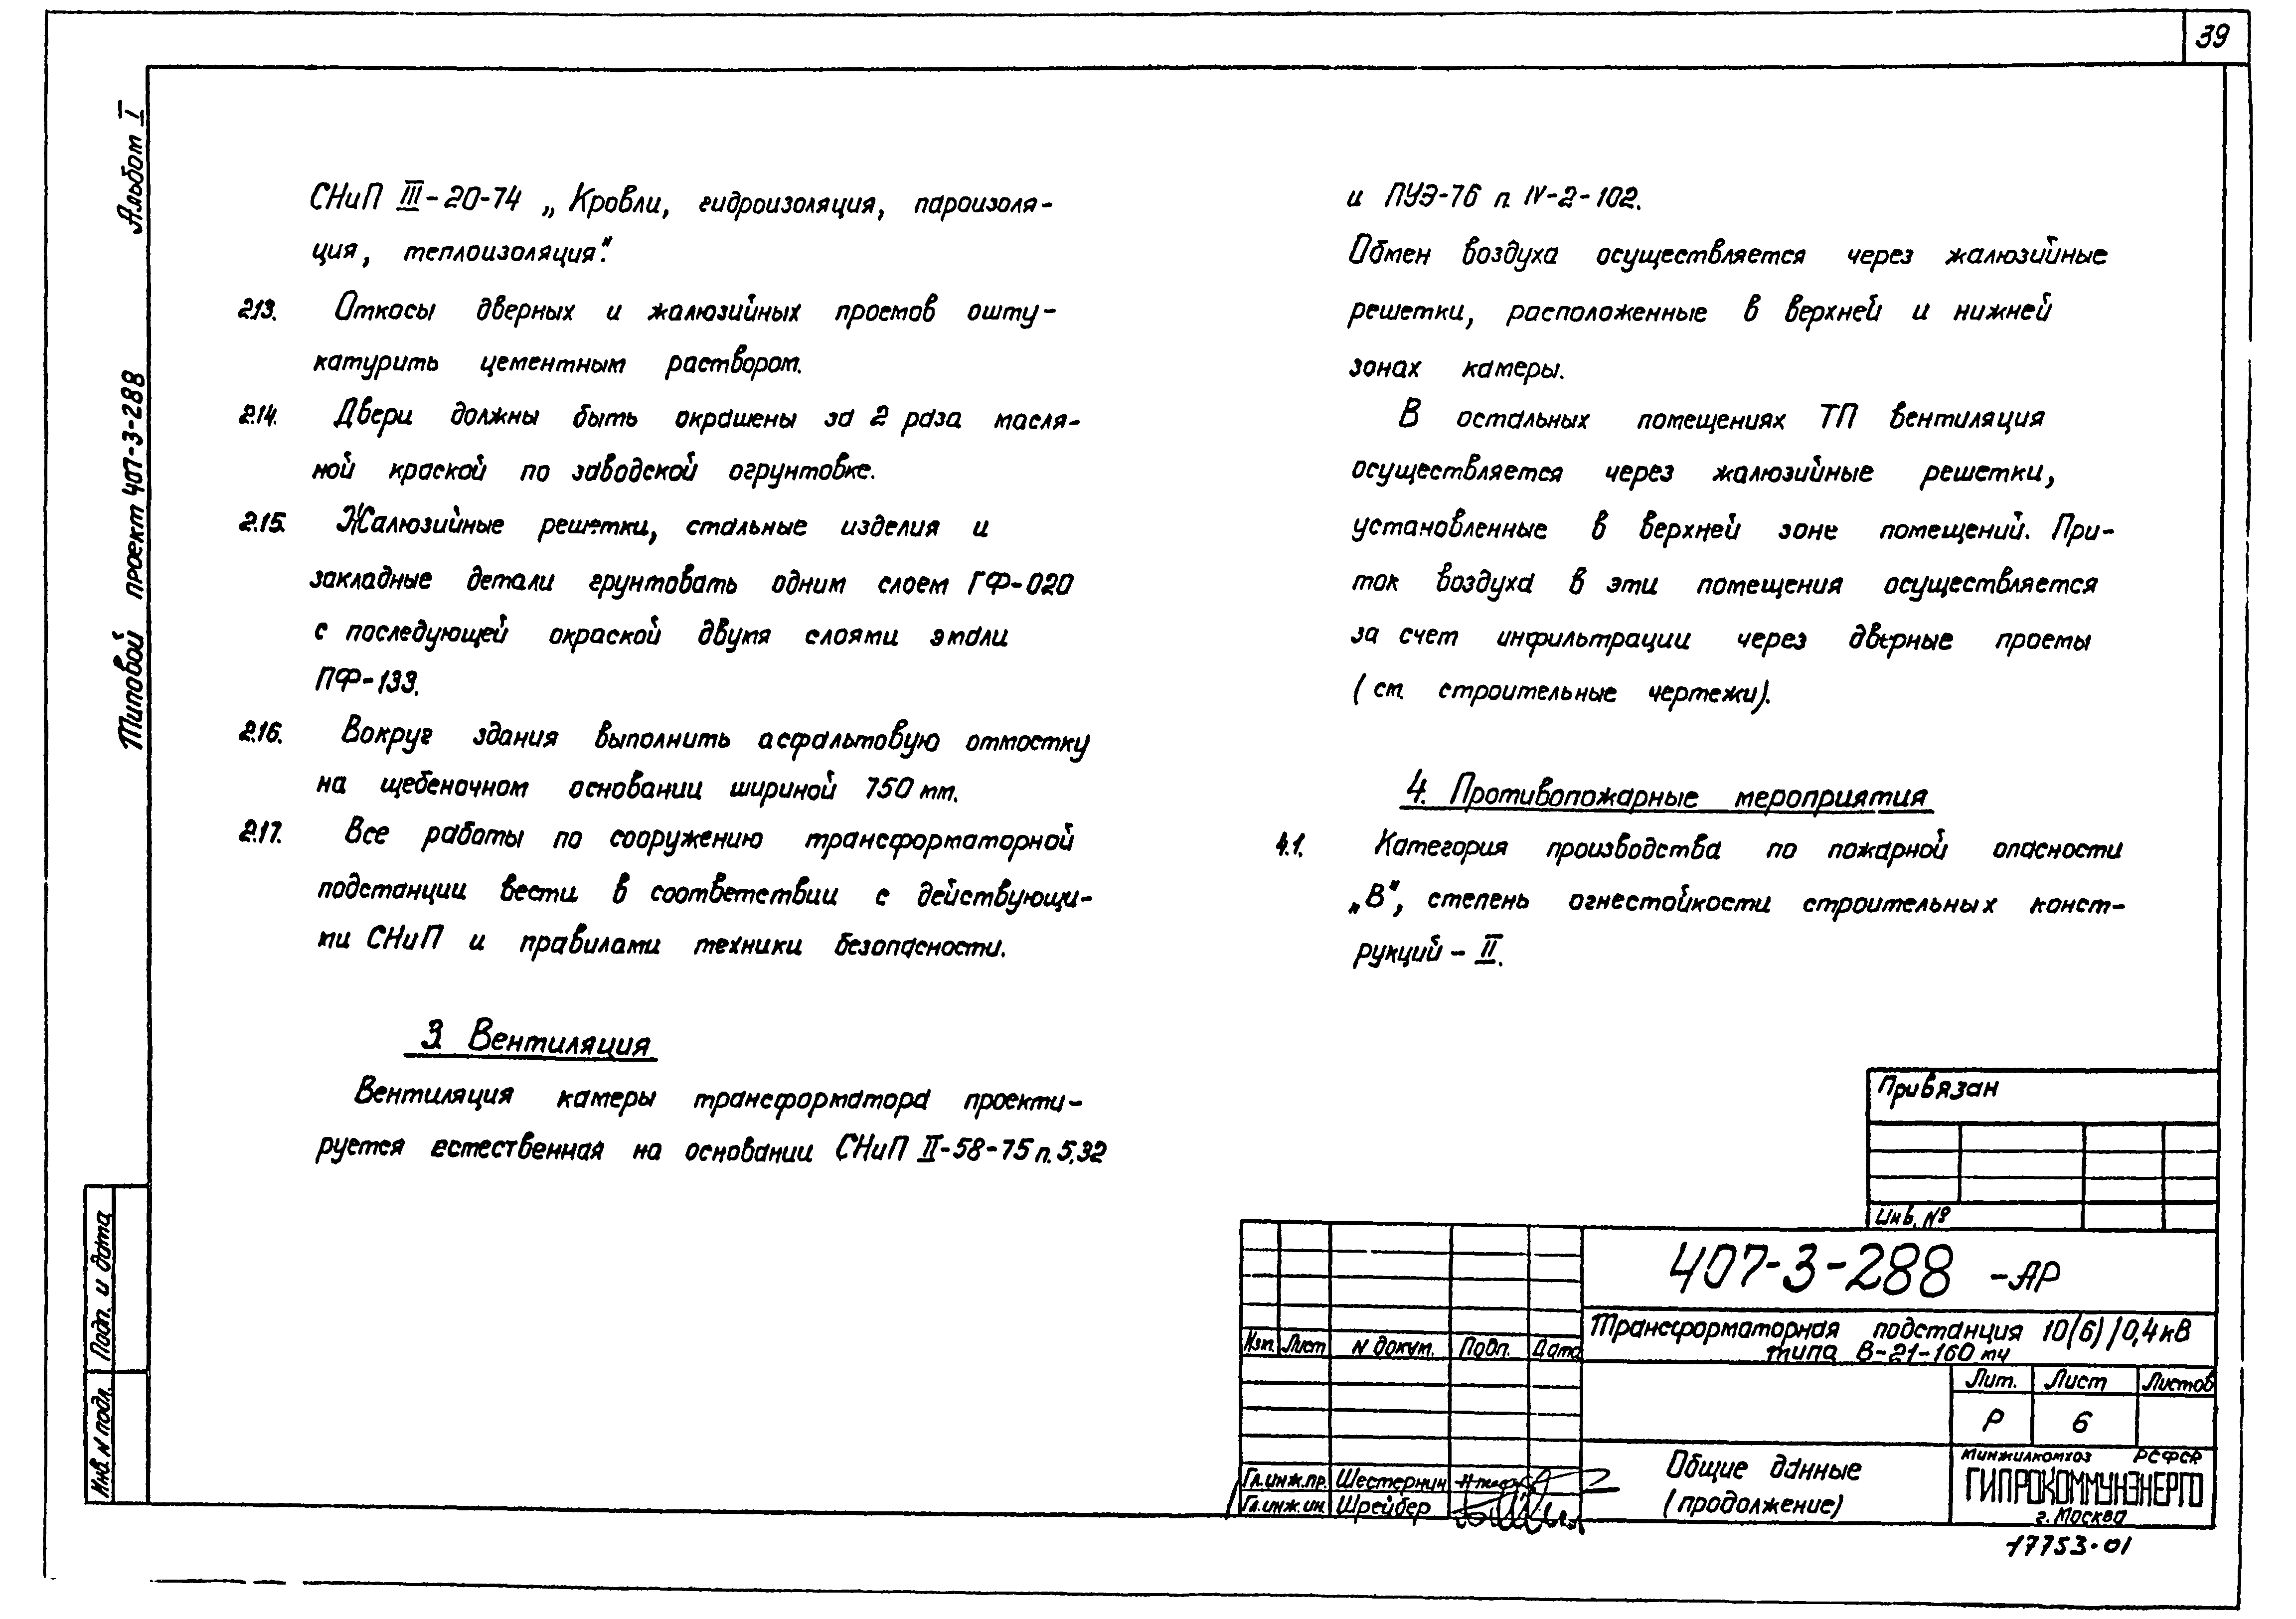 39
Альбом I
Типовой проект 407-3-288
СНиП III-20-74 „Кровли, гидроизоляция, пароизоля-
ция, теплоизоляция".
2.13. Откосы дверных и жалюзийных проемов ошту-
катурить цементным раствором.
2.14. Двери должны быть окрашены за 2 раза масля-
ной краской по заводской огрунтовке.
2.15. Жалюзийные решетки, стальные изделия и
закладные детали грунтовать одним слоем ГФ-020
с последующей окраской двумя слоями эмали
ПФ-133.
2.16. Вокруг здания выполнить асфальтовую отмостку
на щебеночном основании шириной 750 мм.
2.17. Все работы по сооружению трансформаторной
подстанции вести в соответствии с действующи-
ми СНиП и правилами техники безопасности.
3. Вентиляция
Вентиляция камеры трансформатора проекти-
руется естественная на основании СНиП II-58-75 п. 5.32
и ПУЭ-76 п. IV-2-102.
Обмен воздуха осуществляется через жалюзийные
решетки, расположенные в верхней и нижней
зонах камеры.
В остальных помещениях ТП вентиляция
осуществляется через жалюзийные решетки,
установленные в верхней зоне помещений. При-
ток воздуха в эти помещения осуществляется
за счет инфильтрации через дверные проемы
(см. строительные чертежи).
4. Противопожарные мероприятия
4.1. Категория производства по пожарной опасности
„В", степень огнестойкости строительных конст-
рукций - II.
Привязан
Инв. №
407-3-288 -АР
Трансформаторная подстанция 10(6)/0,4кВ
типа В-21-160 мч
Изм. Лист N докум. Подп. Дата
Лит. Лист Листов
Р 6
Гл.инж.пр. Шестернин
Гл.инж.ин. Шрейбер
Общие данные
(продолжение)
Минжилкомхоз РСФСР
ГИПРОКОММУНЭНЕРГО
г. Москва
17753-01
Подп. и дата
Инв. N подл.